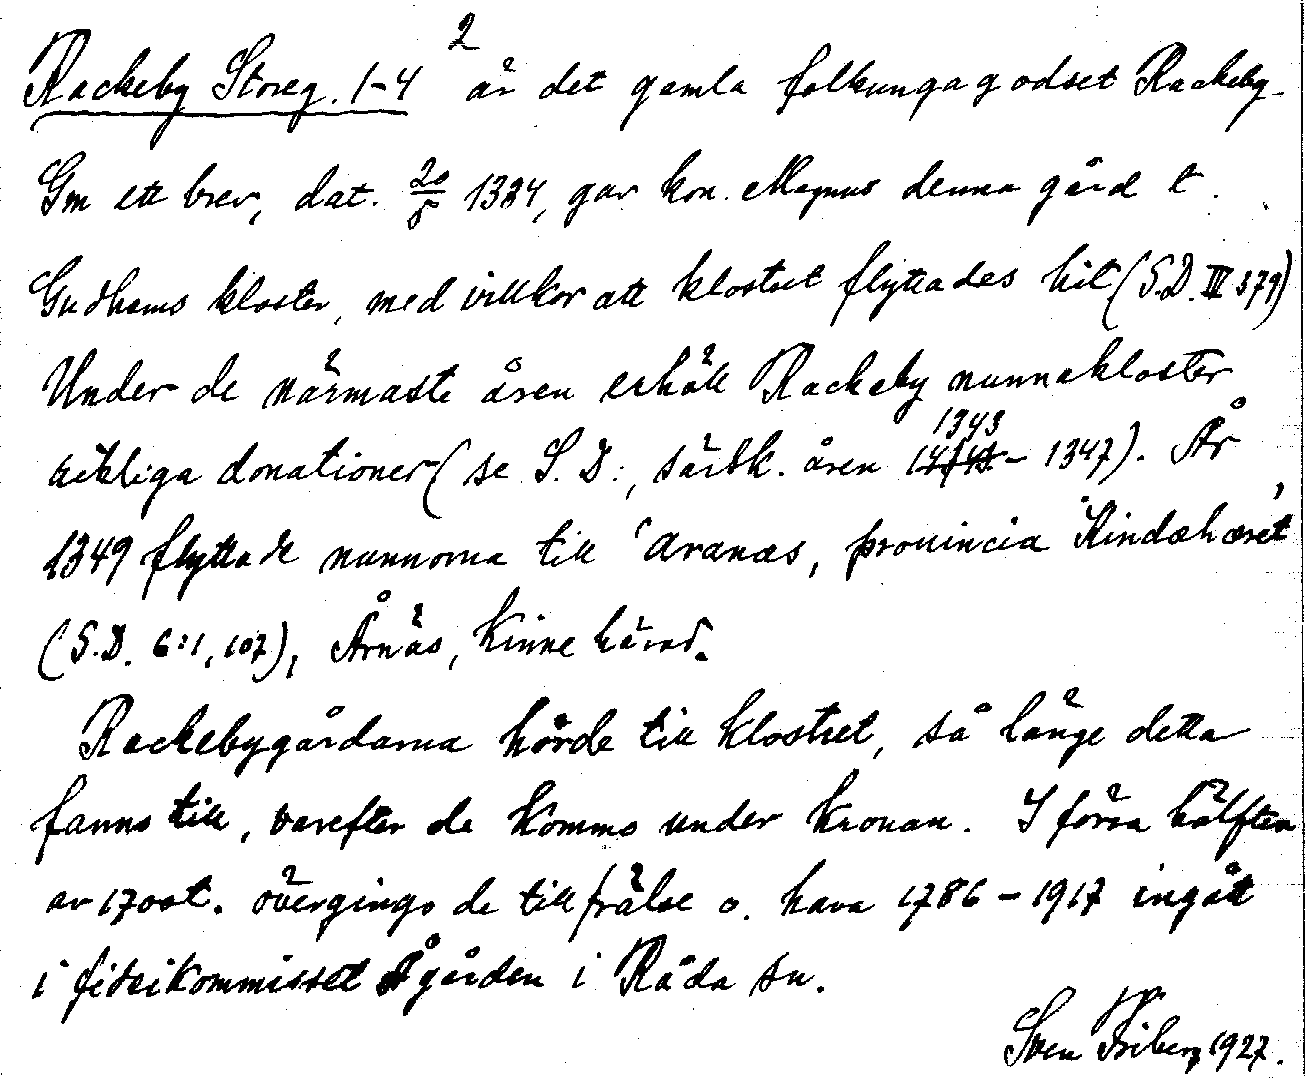 Rackeby Storeg. 1-4 2 är det gamla folkungagodset Rackeby.
Gm ett brev, dat. 20/5 1324, gav kon. Magnus denna gård t.
Gudhems kloster, med villkor att klostret flyttades hit (S.D. III 379)
Under de närmaste åren erhöll Rackeby nunnekloster
rikliga donationer (se S.D:, särsk. åren 1343 - 1347). År
1349 flyttade nunnorna till 'Aranæs, prouincia Kindæhæret'
(S.D. 6:1, 107), Årnäs, Kinne härad.
Rackebygårdarna hörde till klostret, så länge detta
fanns till, varefter de kommo under kronan. I förra hälften
av 1700t. övergingo de till frälse o. hava 1786-1917 ingått
i fideikommisset Stågården i Råda sn.
Sven Friberg 1927.